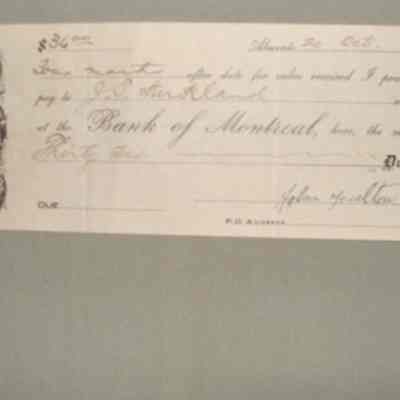 $36.00 20 Oct.
months after date for value received I
pay to J.S.
at the Bank of Montreal, here, the
Thirty Six
DUE John
P.O. ADDRESS